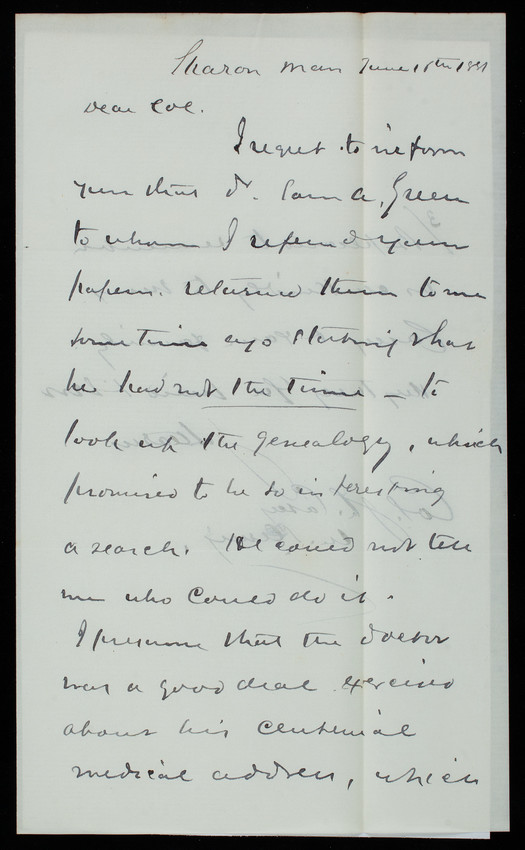 Sharon Mass June 15th 1881
Dear Col.
I regret to inform
you that Dr. Sam A. Green
to whom I referred your
papers. returned them to me
sometime ago stating that
he had not the time - to
look up the genealogy, which
promised to be so interesting
a search. He could not tell
me who could do it.
I presume that the doctor
was a good deal exercised
about his centennial
medical address, which